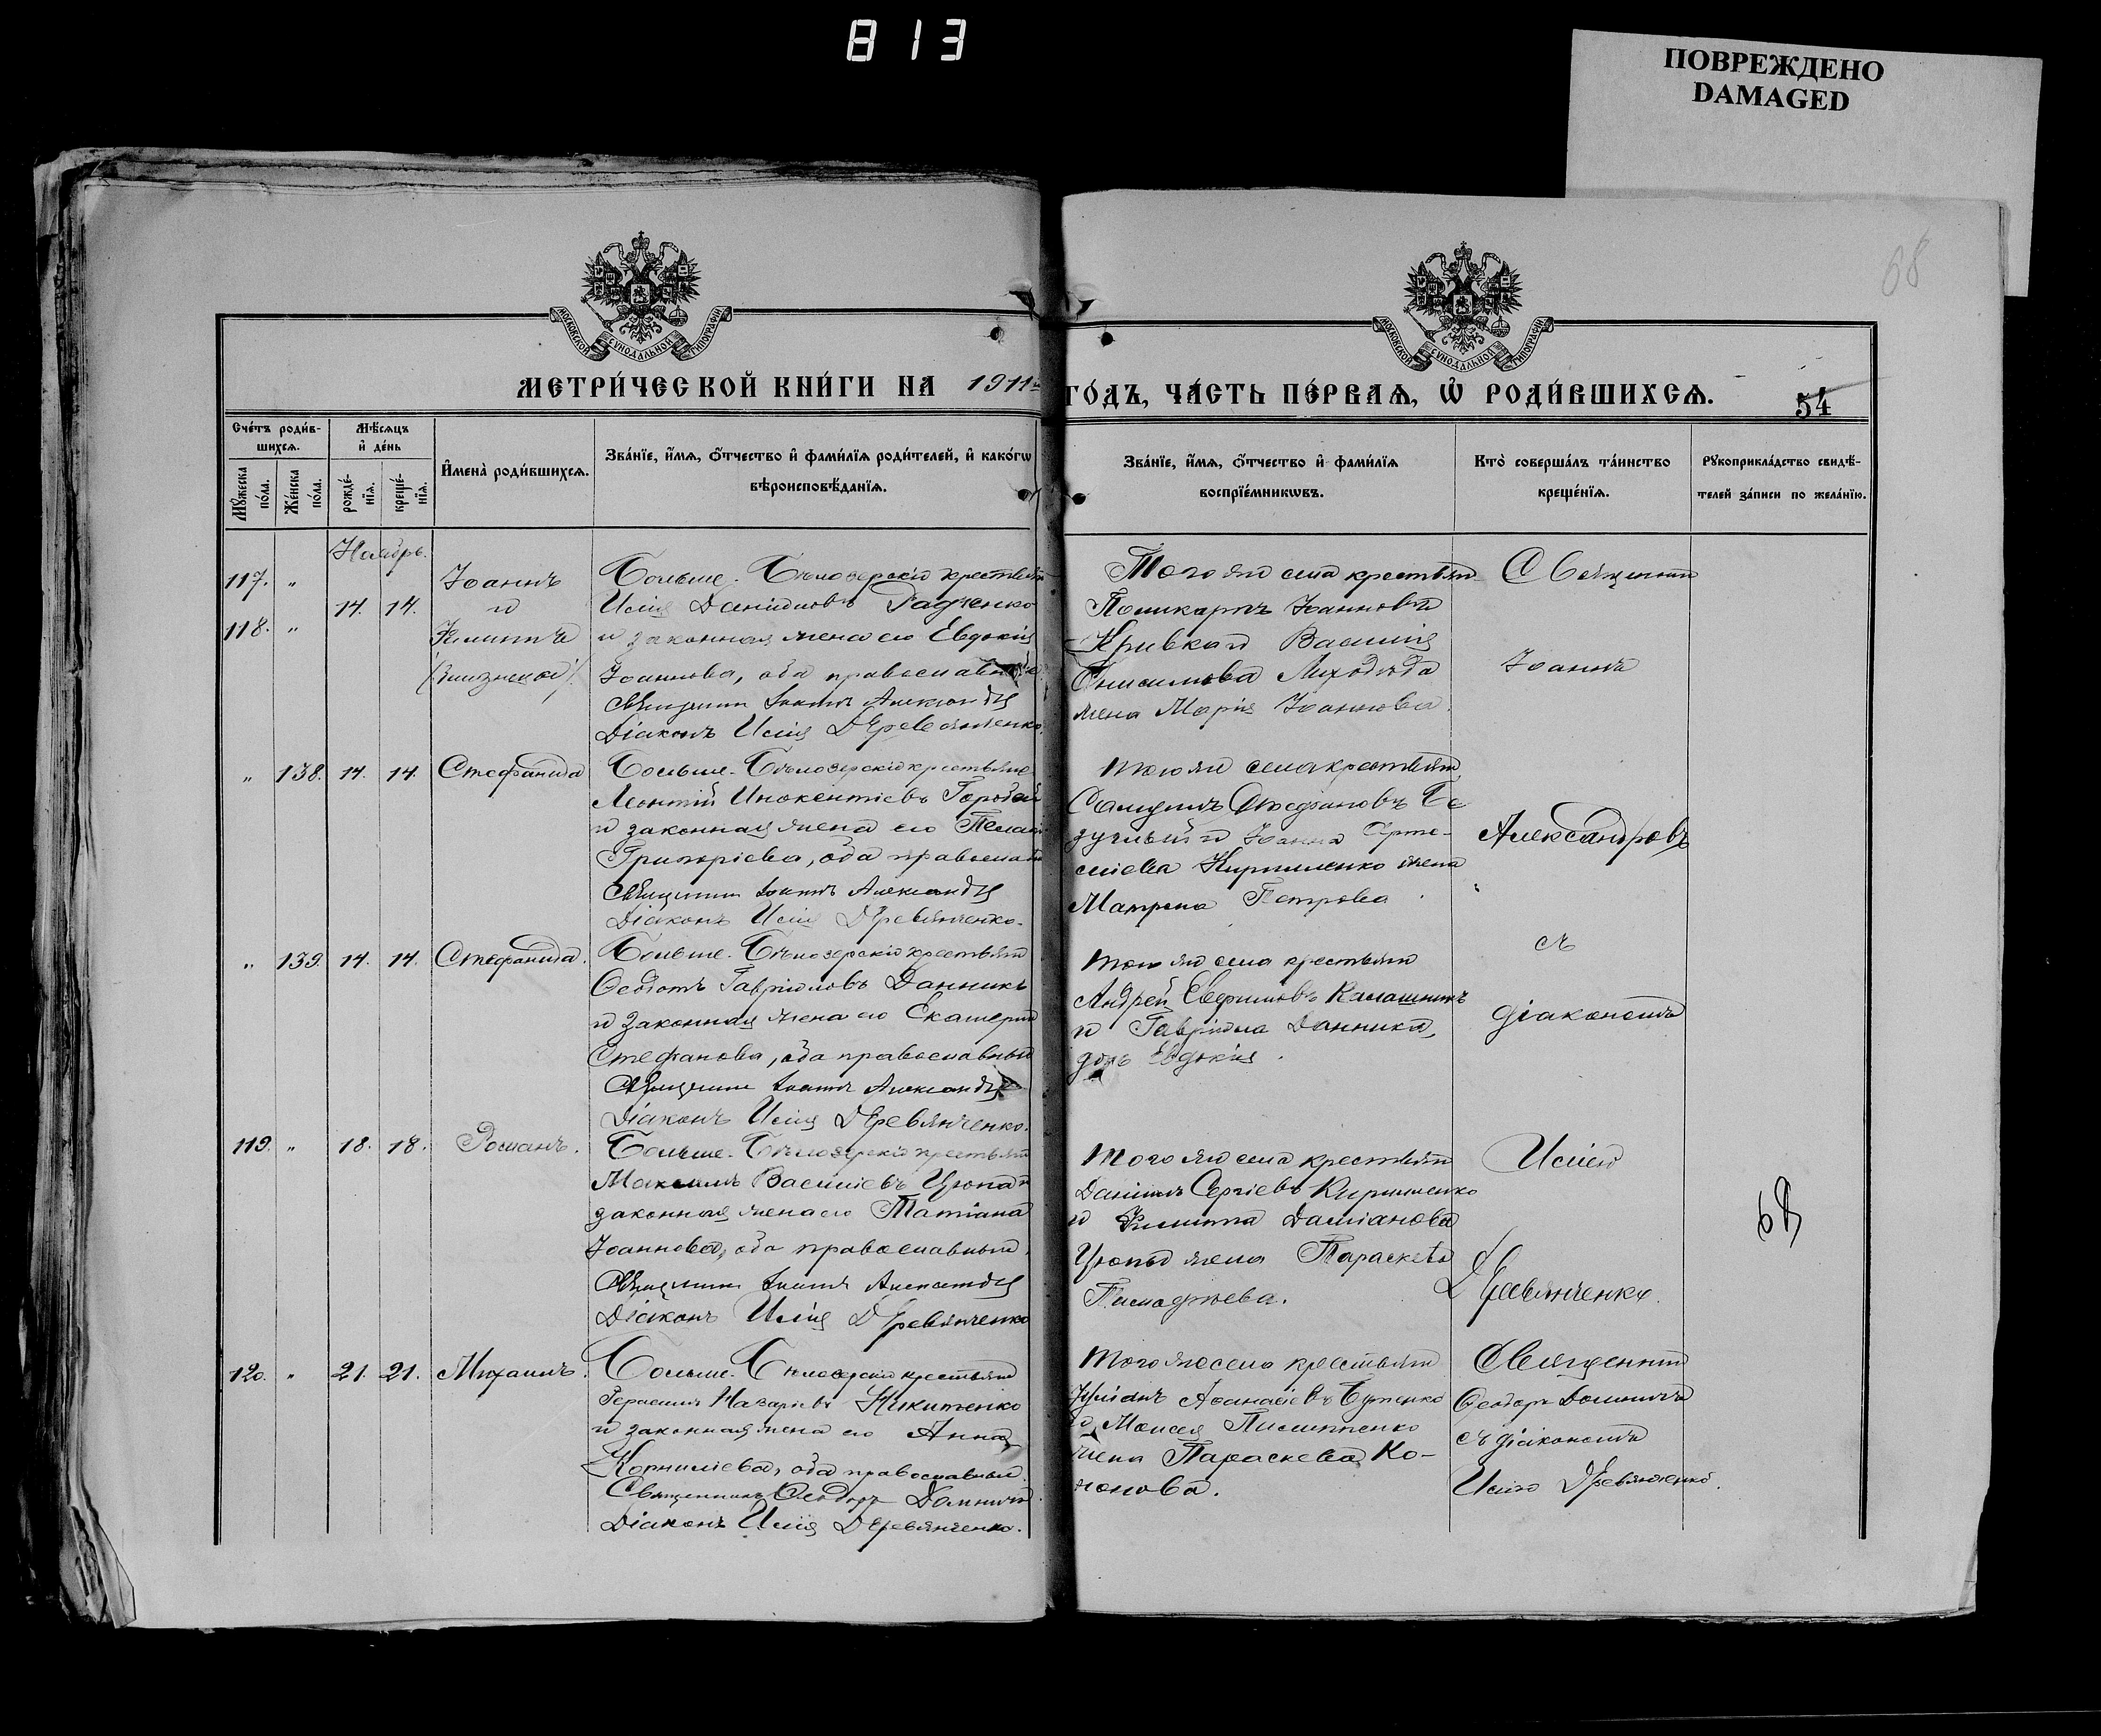 813
ПОВРЕЖДЕНО
DAMAGED
68
МОСКОВСКОЙ СѴНОДАЛЬНОЙ ТИПОГРАФІИ
МОСКОВСКОЙ СѴНОДАЛЬНОЙ ТИПОГРАФІИ
МЕТРИ́ЧЕСКОЙ КНИ́ГИ НА 1911й
ГО́ДЪ, ЧА́СТЬ ПЕ́РВАЯ, Ѡ҆ РОДИ́ВШИХСЯ.
54
Сче́тъ роди́в-
шихся.
Мѣ́сяцъ
и҆ де́нь
Мꙋ́жеска
по́ла.
Же́нска
по́ла.
рожде́-
нїя.
креще́-
нїя.
И҆мена̀ роди́вшихся.
Зва́нїе, и҆́мя, ѻ҆́тчество и҆ фами́лїя роди́телей, и҆ како́гѡ
вѣроисповѣ́данїя.
Зва́нїе, и҆́мя, ѻ҆́тчество и҆ фами́лїя
воспрїе́мникѡвъ.
Кто̀ соверша́лъ та́инство
креще́нїя.
Рꙋкоприкла́дство свидѣ́-
телей за́писи по жела́нїю.
Ноябрь.
117. „ 14. 14. Іоаннъ
и
118. „ Филиппъ
(близнецы)
Больше-Бѣлозерскій крестьян
Илія Даніиловъ Радченко
и законная жена его Евдокія
Іоаннова, оба православные
Священникъ Іоаннъ Александровъ
Діаконъ Илія Деревянченко.
Того же села крестьян
Поликарпъ Іоанновъ
Кривко и Василія
Онисимова Лиходѣда
жена Марія Іоаннова.
Священникъ
Іоаннъ
„ 138. 14. 14. Стефанида
Больше-Бѣлозерскій крестьяне
Леонтій Инокентіевъ
и законная жена его
Григоріева, оба православны
Священникъ Іоаннъ Александровъ
Діаконъ Илія Деревянченко.
того же села крестьян.
Стефановъ
и Іоанна Арте-
міева Кириленко жена
Матрона Петрова
Александровъ
„ 139. 14. 14. Стефанида.
Больше-Бѣлозерскій крестьян
Ѳеодотъ Гавріиловъ Данникъ
и законная жена его Екатерина
Стефанова, оба православные
Священникъ Іоаннъ Александровъ
Діаконъ Илія Деревянченко.
того же села крестьян
Андрей Евфимовъ Калашникъ
и Гавріила Данника,
дочь Евдокія.
съ
діакономъ
119. „ 18. 18. Романъ.
Больше-Бѣлозерскій крестьян
Максимъ Василіевъ Цюпа и
законная жена его Татіана
Іоаннова, оба православные.
Священникъ Іоаннъ Александровъ
Діаконъ Илія Деревянченко
Того же села крестьян
Даніилъ Сергіевъ Кириленко
и Филиппа Даміанова
Цюпы жена Параскева
Тимофѣева.
Иліею
Деревянченко.
68
120. „ 21. 21. Михаилъ.
Больше-Бѣлозерскій крестьян
Герасимъ Назаріевъ Никитенко
и законная жена его Анна
Корниліева, оба православные.
Священникъ Ѳеодоръ
Діаконъ Илія Деревянченко.
Того же села крестьян
Аѳанасіевъ
и Моисея
жена Параскева Ко-
нонова.
Священникъ
Ѳеодоръ
съ діакономъ
Иліею Деревянченко.